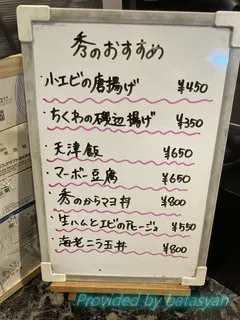 秀のおすすめ
・小エビの唐揚げ ¥450
・ちくわの磯辺揚げ ¥350
・天津飯 ¥650
・マーボー豆腐 ¥650
・秀のからマヨ丼 ¥800
・生ハムとエビのアヒージョ ¥550
・海老ニラ玉丼 ¥800
Provided by batasyan